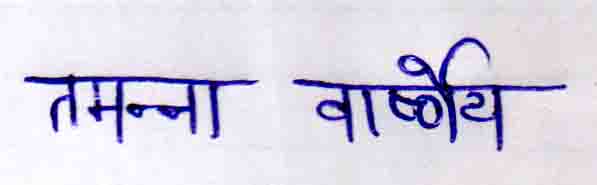 तमन्ना वार्ष्णेय